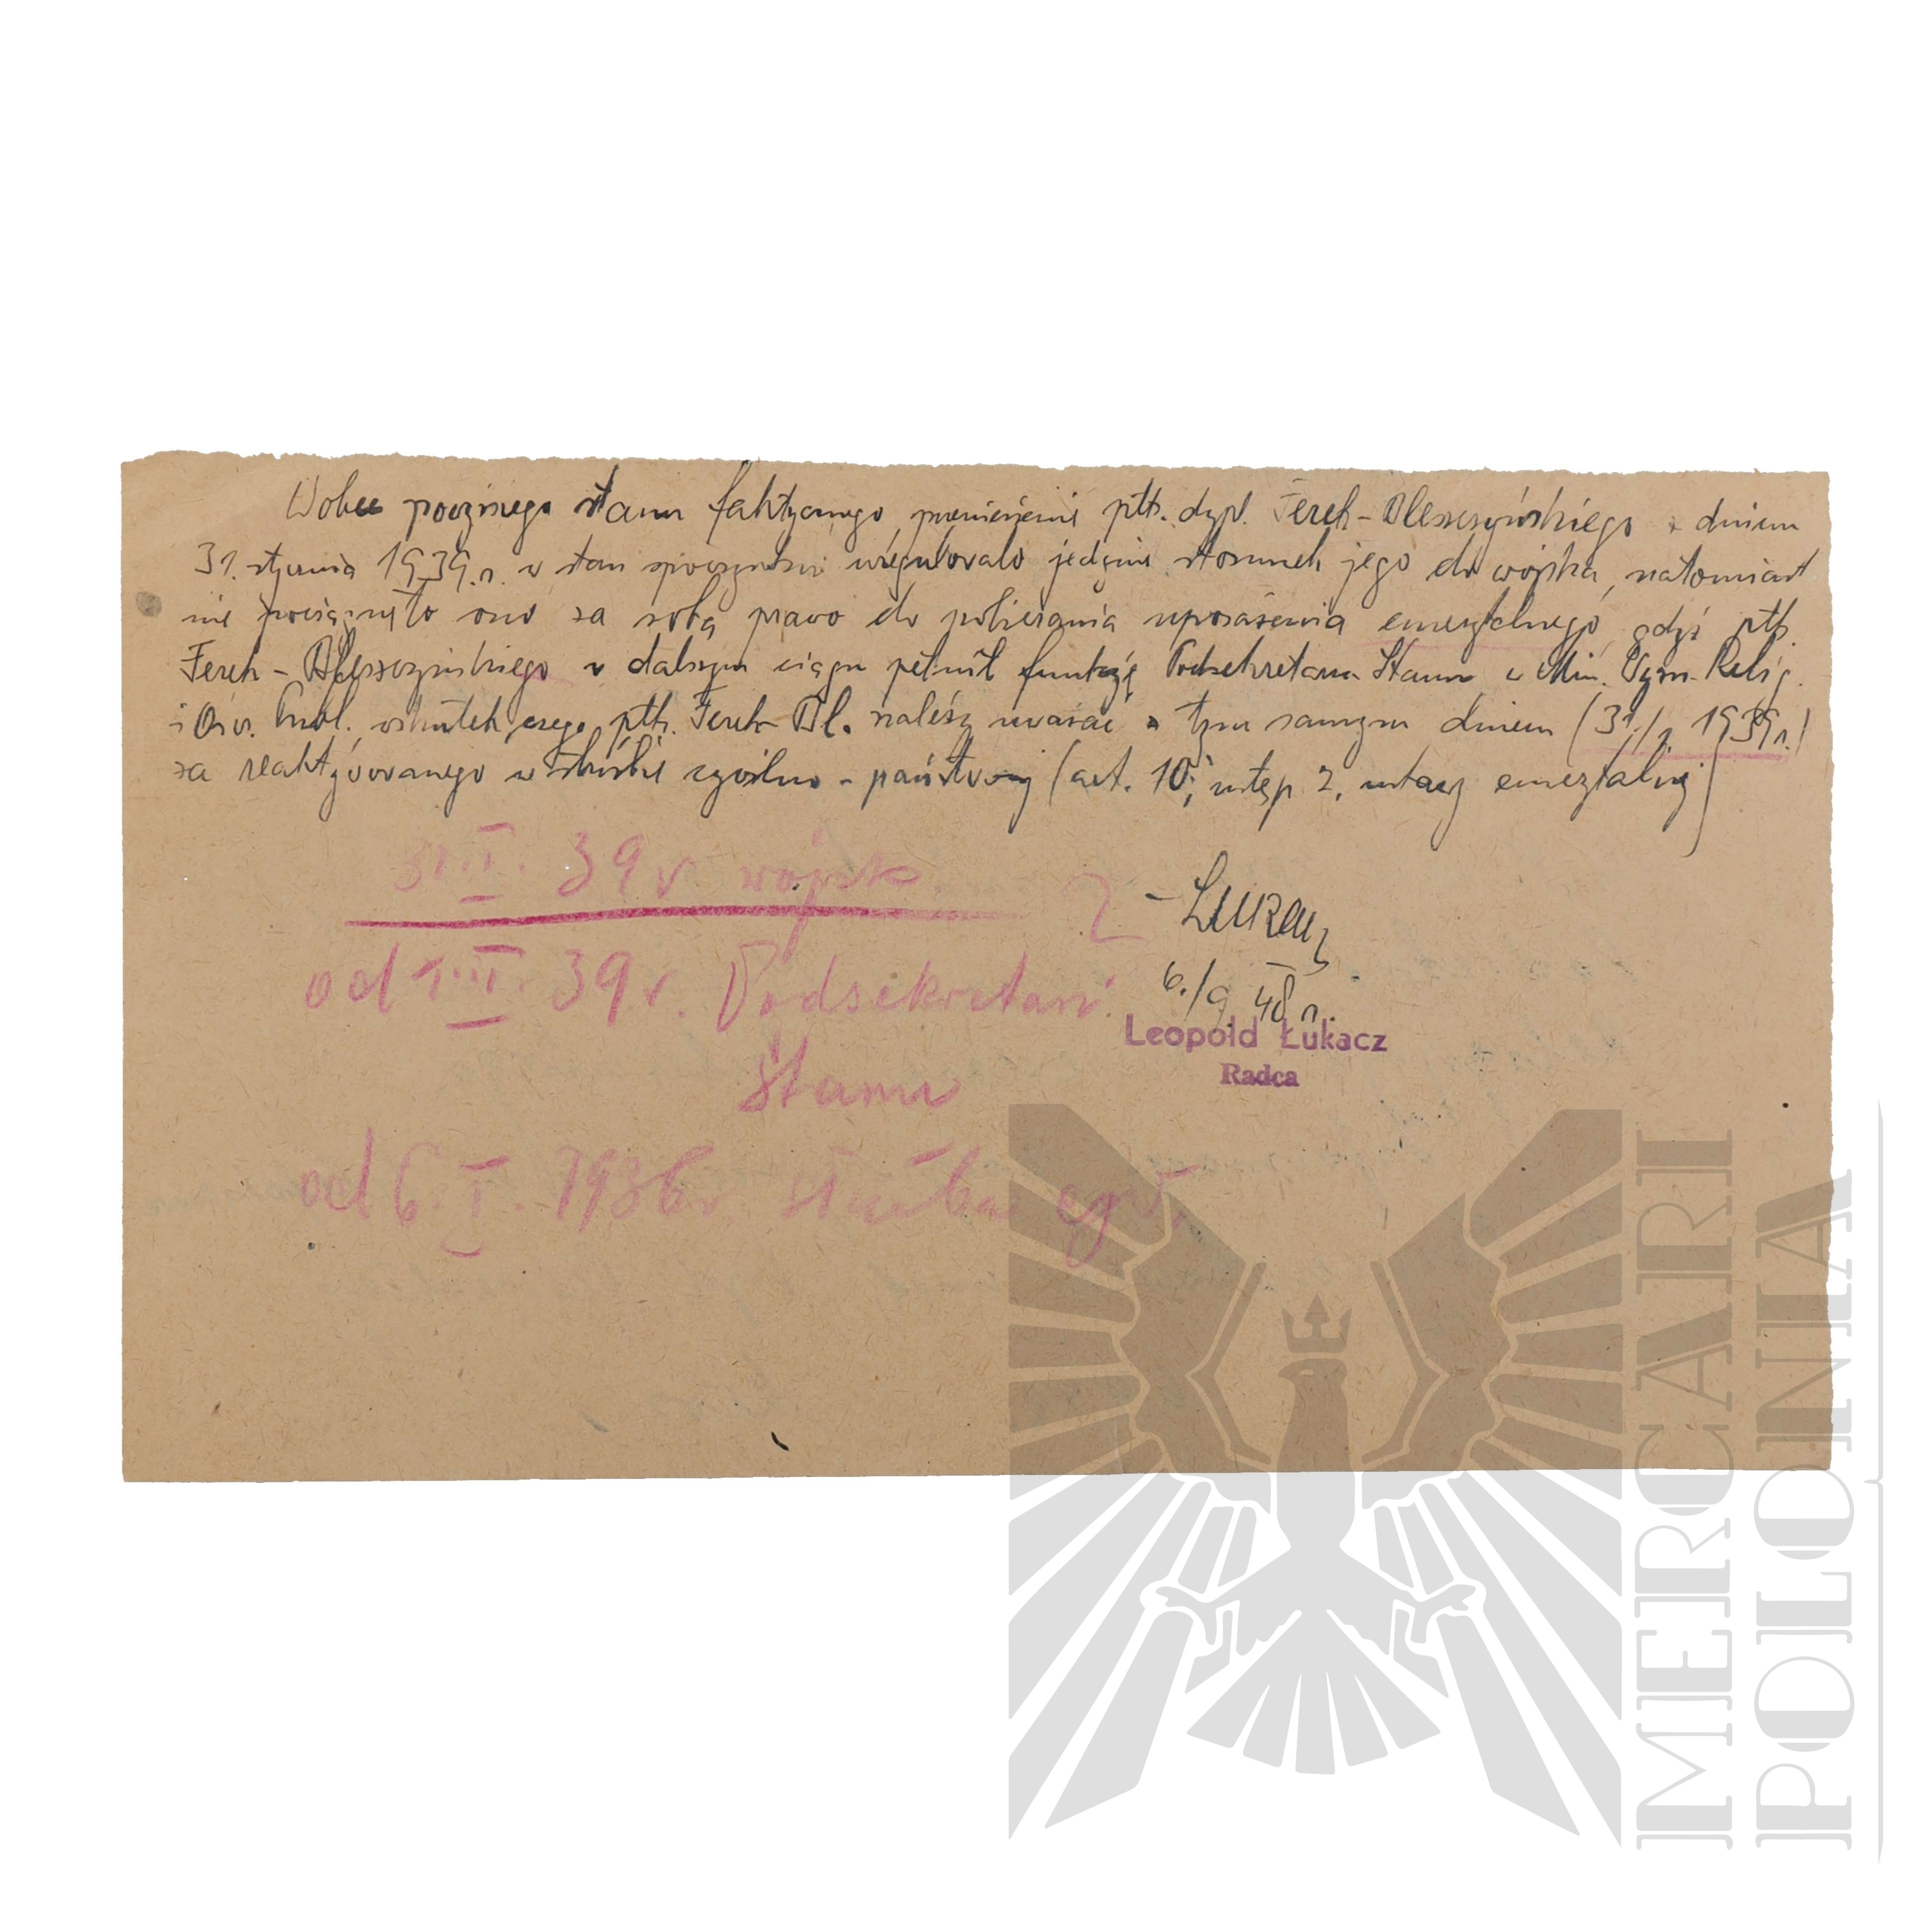 Wobec powyższego stanu faktycznego przeniesienie płk. dypl. Ferek-Błeszczyńskiego z dniem
31. stycznia 1939.r. w stan spoczynku uregulowało jedynie stosunek jego do wojska, natomiast
nie pociągnęło ono za sobą prawo do pobierania uposażenia emerytalnego, gdyż płk.
Ferek-Błeszczyńskiego w dalszym ciągu pełnił funkcję Podsekretarza Stanu w Min. Wyzn. Relig.
i Ośw. Publ. wskutek czego płk. Ferek-Bł. należy uważać z tym samym dniem (31./1 1939r.)
za reaktywowanego w służbie cywilno-państwowej (art. 10, ustęp 2, ustawy emerytalnej)
31.I. 39 r wojsko
od 1.II. 39 r. Podsekretarz
Stanu
od 6.I. 1936 r służba cyw.
Łukacz
6./9 48 r.
Leopold Łukacz
Radca
MERCARI
POLONIA